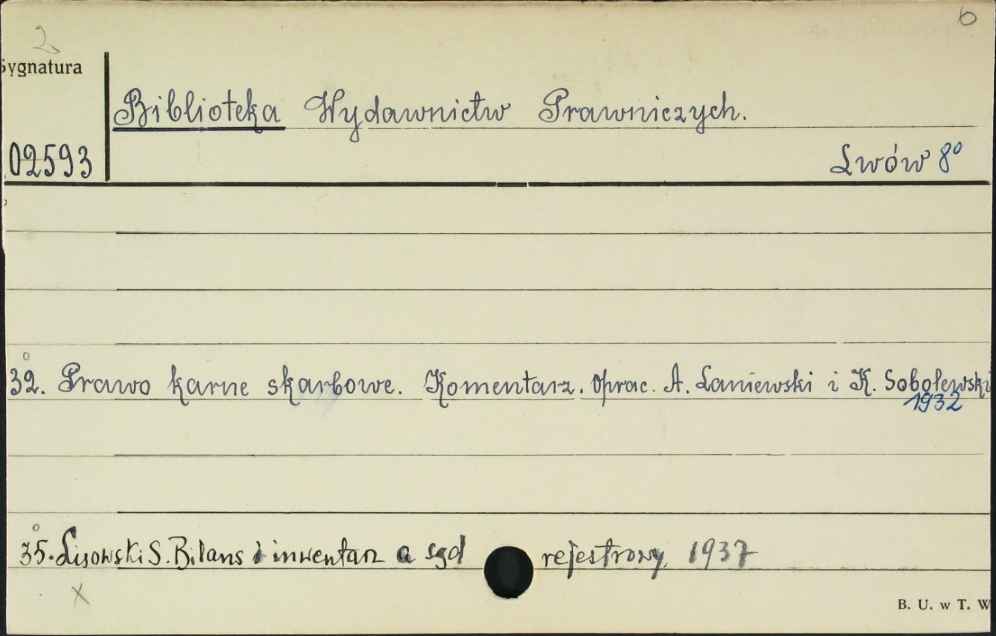 2
6
Sygnatura
Biblioteka Wydawnictw Prawniczych.
02593
Lwów 8°
32. Prawo karne skarbowe. Komentarz. Oprac. A. Łaniewski i K. Sobolewski
1932
35. Lisowski S. Bilans i inwentarz a sąd rejestrowy 1937
x
B. U. w T. W